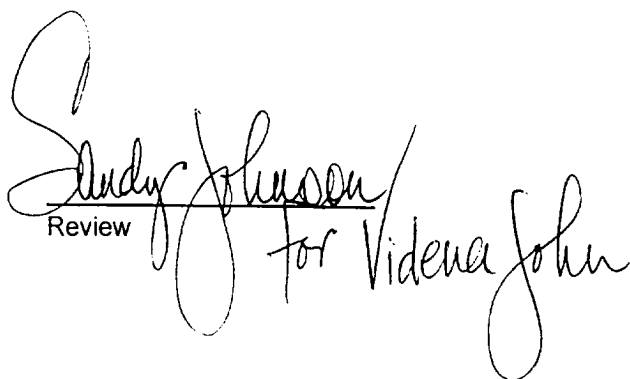 Sandy Johnson/
Review
for Videna John